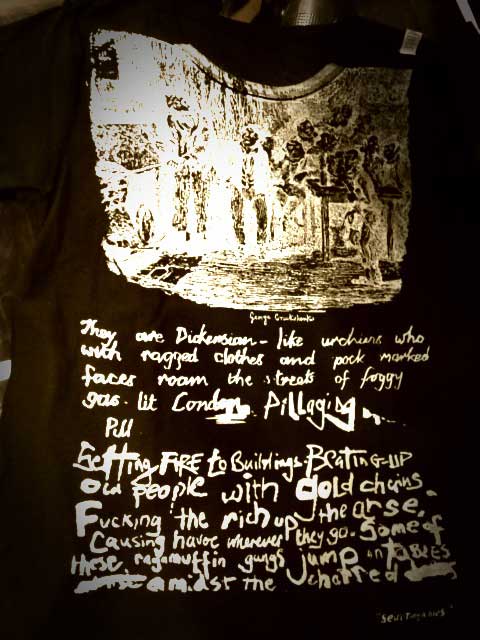 George Cruikshank
They are Dickensian - like urchins who
with ragged clothes and pock marked
faces roam the streets of foggy
gas-lit London. Pillaging
Pill
Setting FIRE to Buildings. BEATING-UP
old people with gold chains.
Fucking the rich up the arse.
Causing havoc wherever they go. Some of
these ragamuffin gangs jump on TABLES
amidst the charred